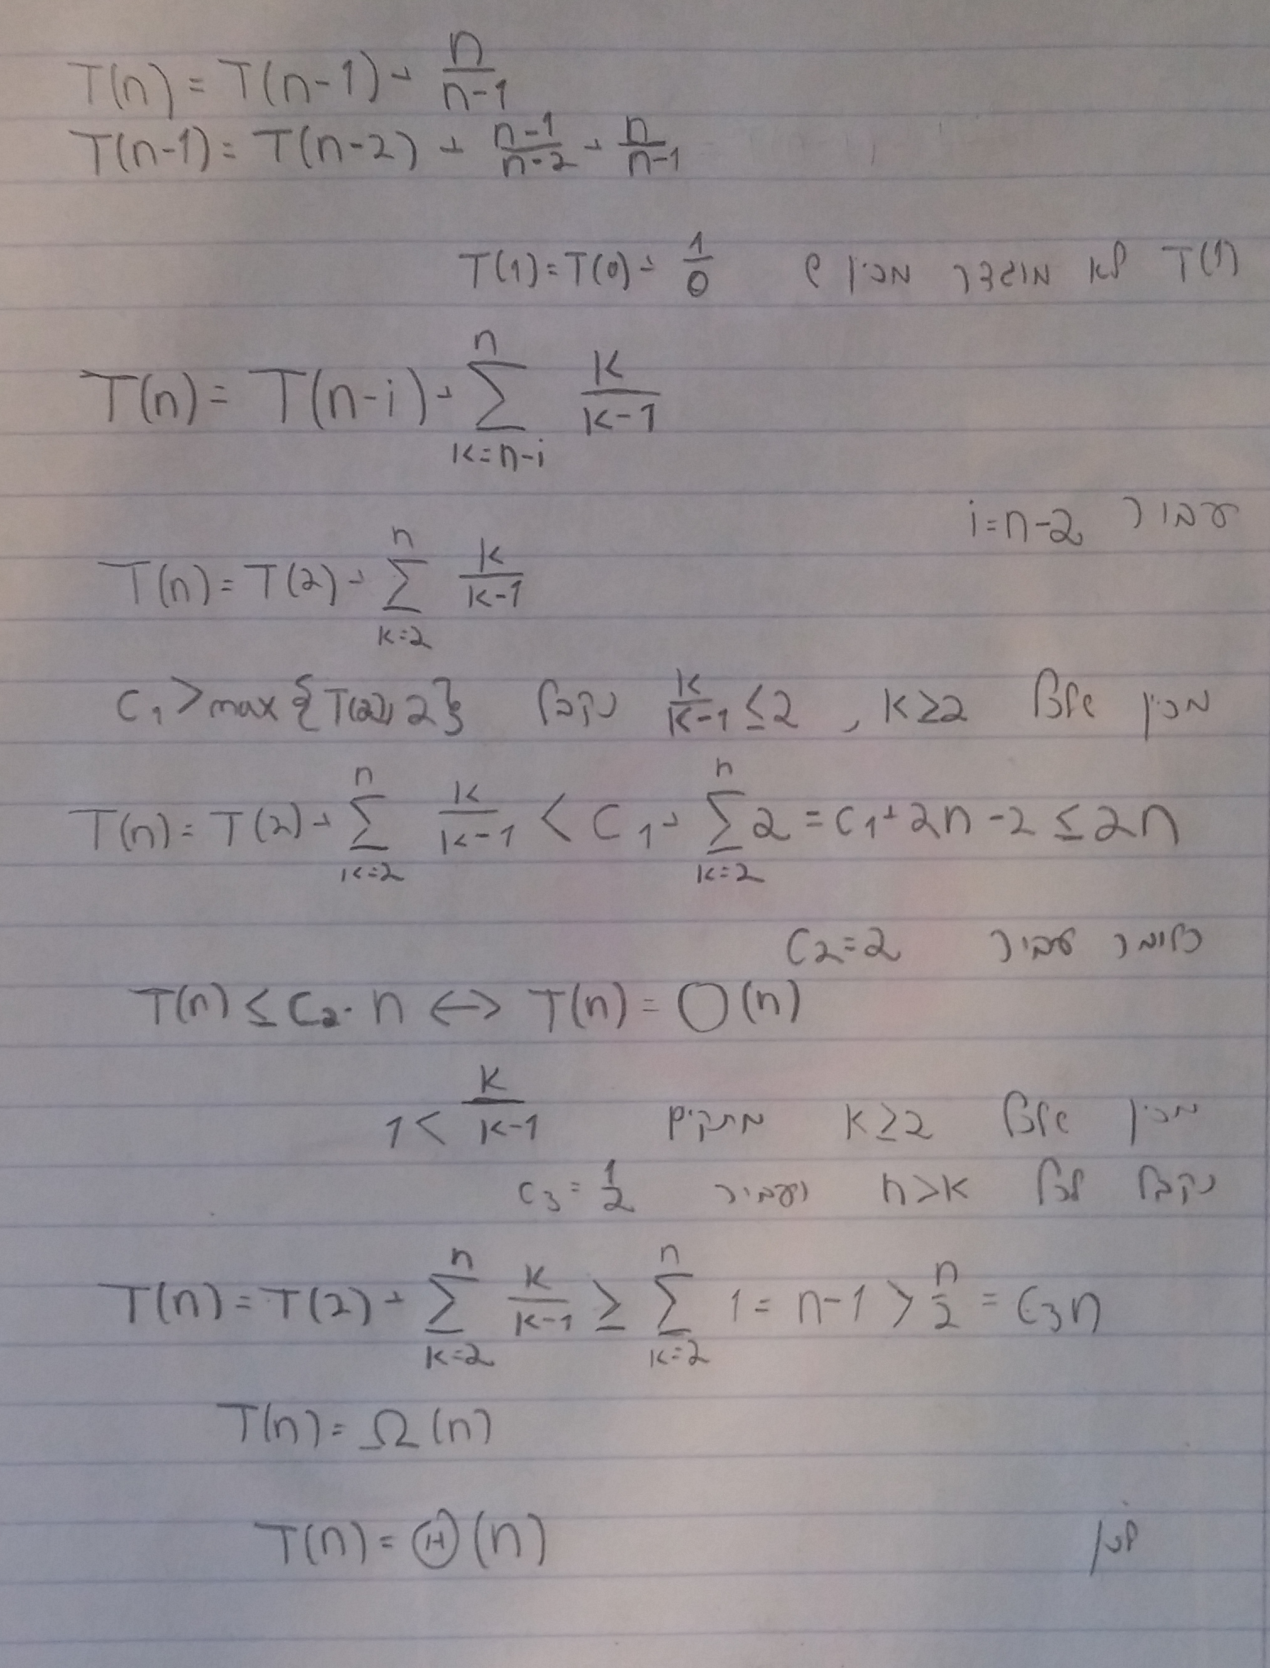 T(n) = T(n-1) + n/(n-1)
T(n-1) = T(n-2) + (n-1)/(n-2) + n/(n-1)
T(1) לא מוגדר מכיון ש T(1) = T(0) + 1/0
T(n) = T(n-i) + Σ_{k=n-i}^{n} k/(k-1)
עבור i = n-2
T(n) = T(2) + Σ_{k=2}^{n} k/(k-1)
מכיון שלכל k ≥ 2 , k/(k-1) ≤ 2 נקבל c₁ > max{T(2), 2}
T(n) = T(2) + Σ_{k=2}^{n} k/(k-1) < c₁ + Σ_{k=2}^{n} 2 = c₁ + 2n - 2 ≤ 2n
כלומר עבור c₂ = 2
T(n) ≤ c₂·n ⟷ T(n) = O(n)
מכיון שלכל k ≥ 2 מתקיים 1 < k/(k-1)
נקבל לכל n > k ועבור c₃ = 1/2
T(n) = T(2) + Σ_{k=2}^{n} k/(k-1) ≥ Σ_{k=2}^{n} 1 = n-1 > n/2 = c₃n
T(n) = Ω(n)
לכן T(n) = Θ(n)